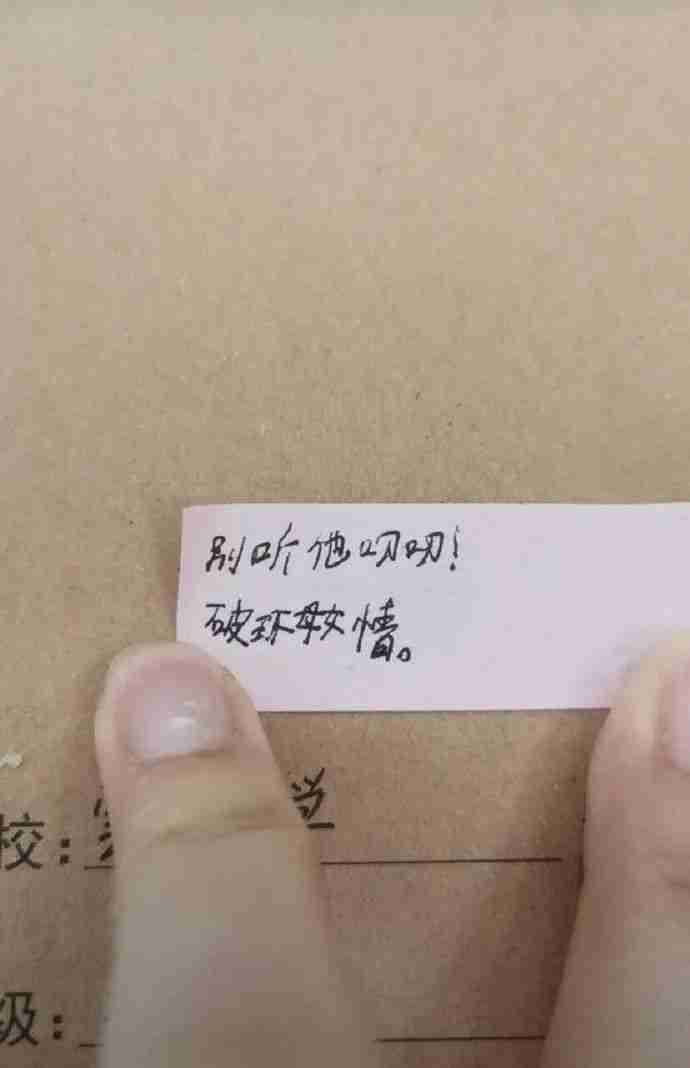 别听他叨叨!
破环母女情。
校: 学
级: